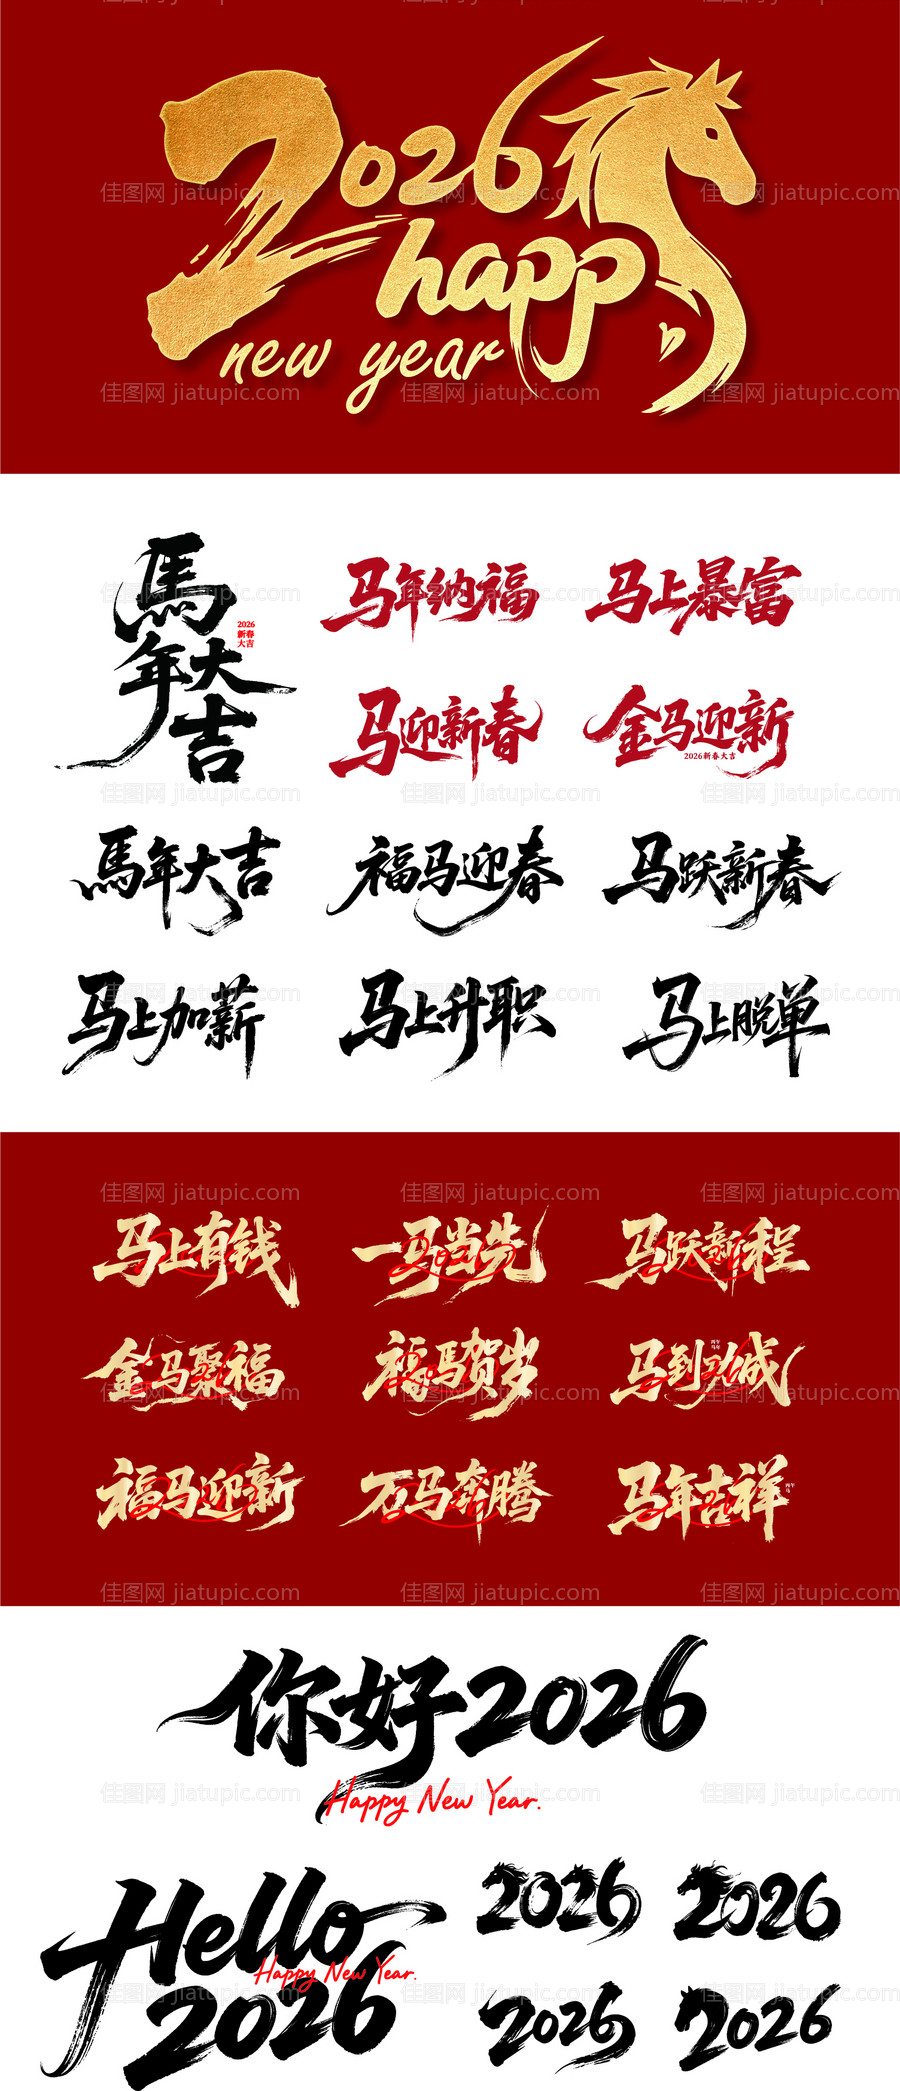 2026
happy
new year
馬年大吉
2026
新春
大吉
马年纳福
马上暴富
马迎新春
金马迎新
2026新春大吉
馬年大吉
福马迎春
马跃新春
马上加薪
马上升职
马上脱单
马上有钱
一马当先
2026
马跃新程
金马聚福
福馬贺岁
马到功成
丙午
马年
福马迎新
万马奔腾
马年吉祥
你好2026
Happy New Year.
Hello
Happy New Year.
2026
2026
2026
2026
2026
佳图网 jiatupic.com